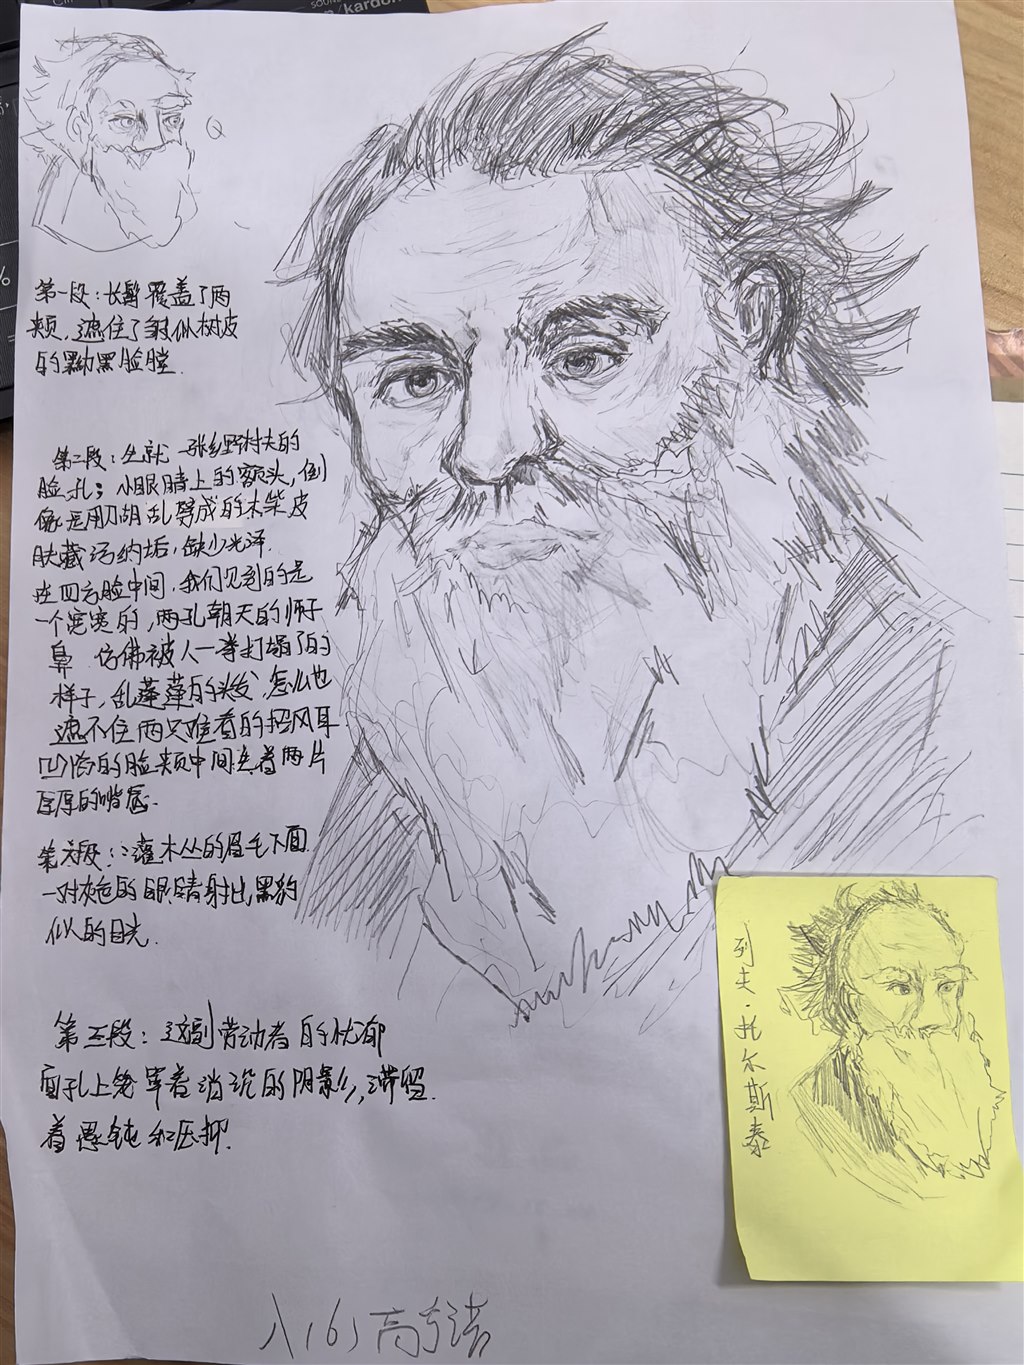 kardon
第一段：长髯覆盖了两
颊，遮住了皱似树皮
的黝黑脸膛
第二段：生就一张乡野村夫的
脸孔；小眼睛上的额头，倒
像是用刀胡乱劈成的木柴皮
肤藏污纳垢，缺少光泽.
在四方脸中间，我们见到的是
一个宽宽的，两孔朝天的师子
鼻 仿佛被人一拳打塌了的
样子，乱蓬蓬的头发，怎么也
遮不住两只难看的招风耳
凹陷的脸颊中间生着两片
厚厚的嘴唇.
第六段：灌木丛的眉毛下面
一对灰色的眼睛射出，黑豹
似的目光.
第三段：这副劳动者的忧郁
面孔上笼罩着消沉的阴影，滞留
着愚钝和压抑.
列夫·托尔斯泰
八（6）高